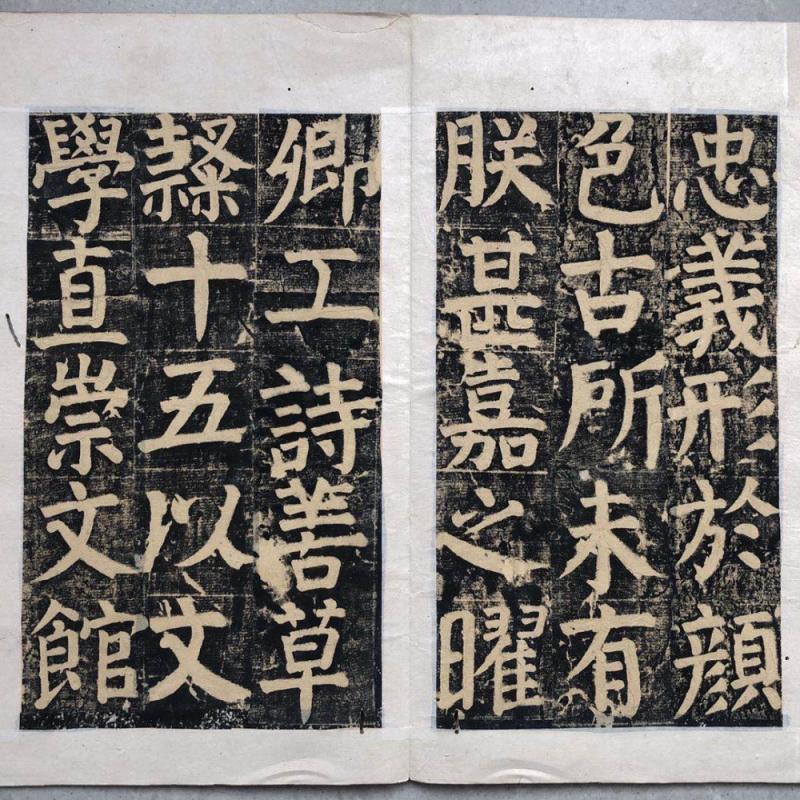 忠義形於顔
色古所未有
朕甚嘉之曜
卿工詩善草
隸十五以文
學直崇文館